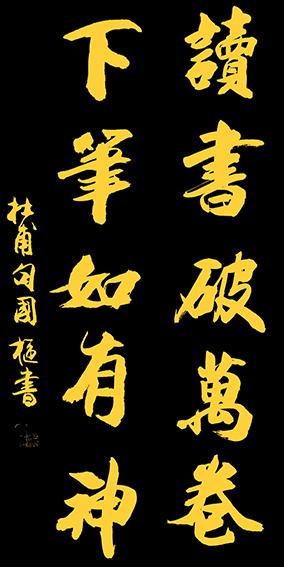 讀書破萬卷
下筆如有神
杜甫句國樞書